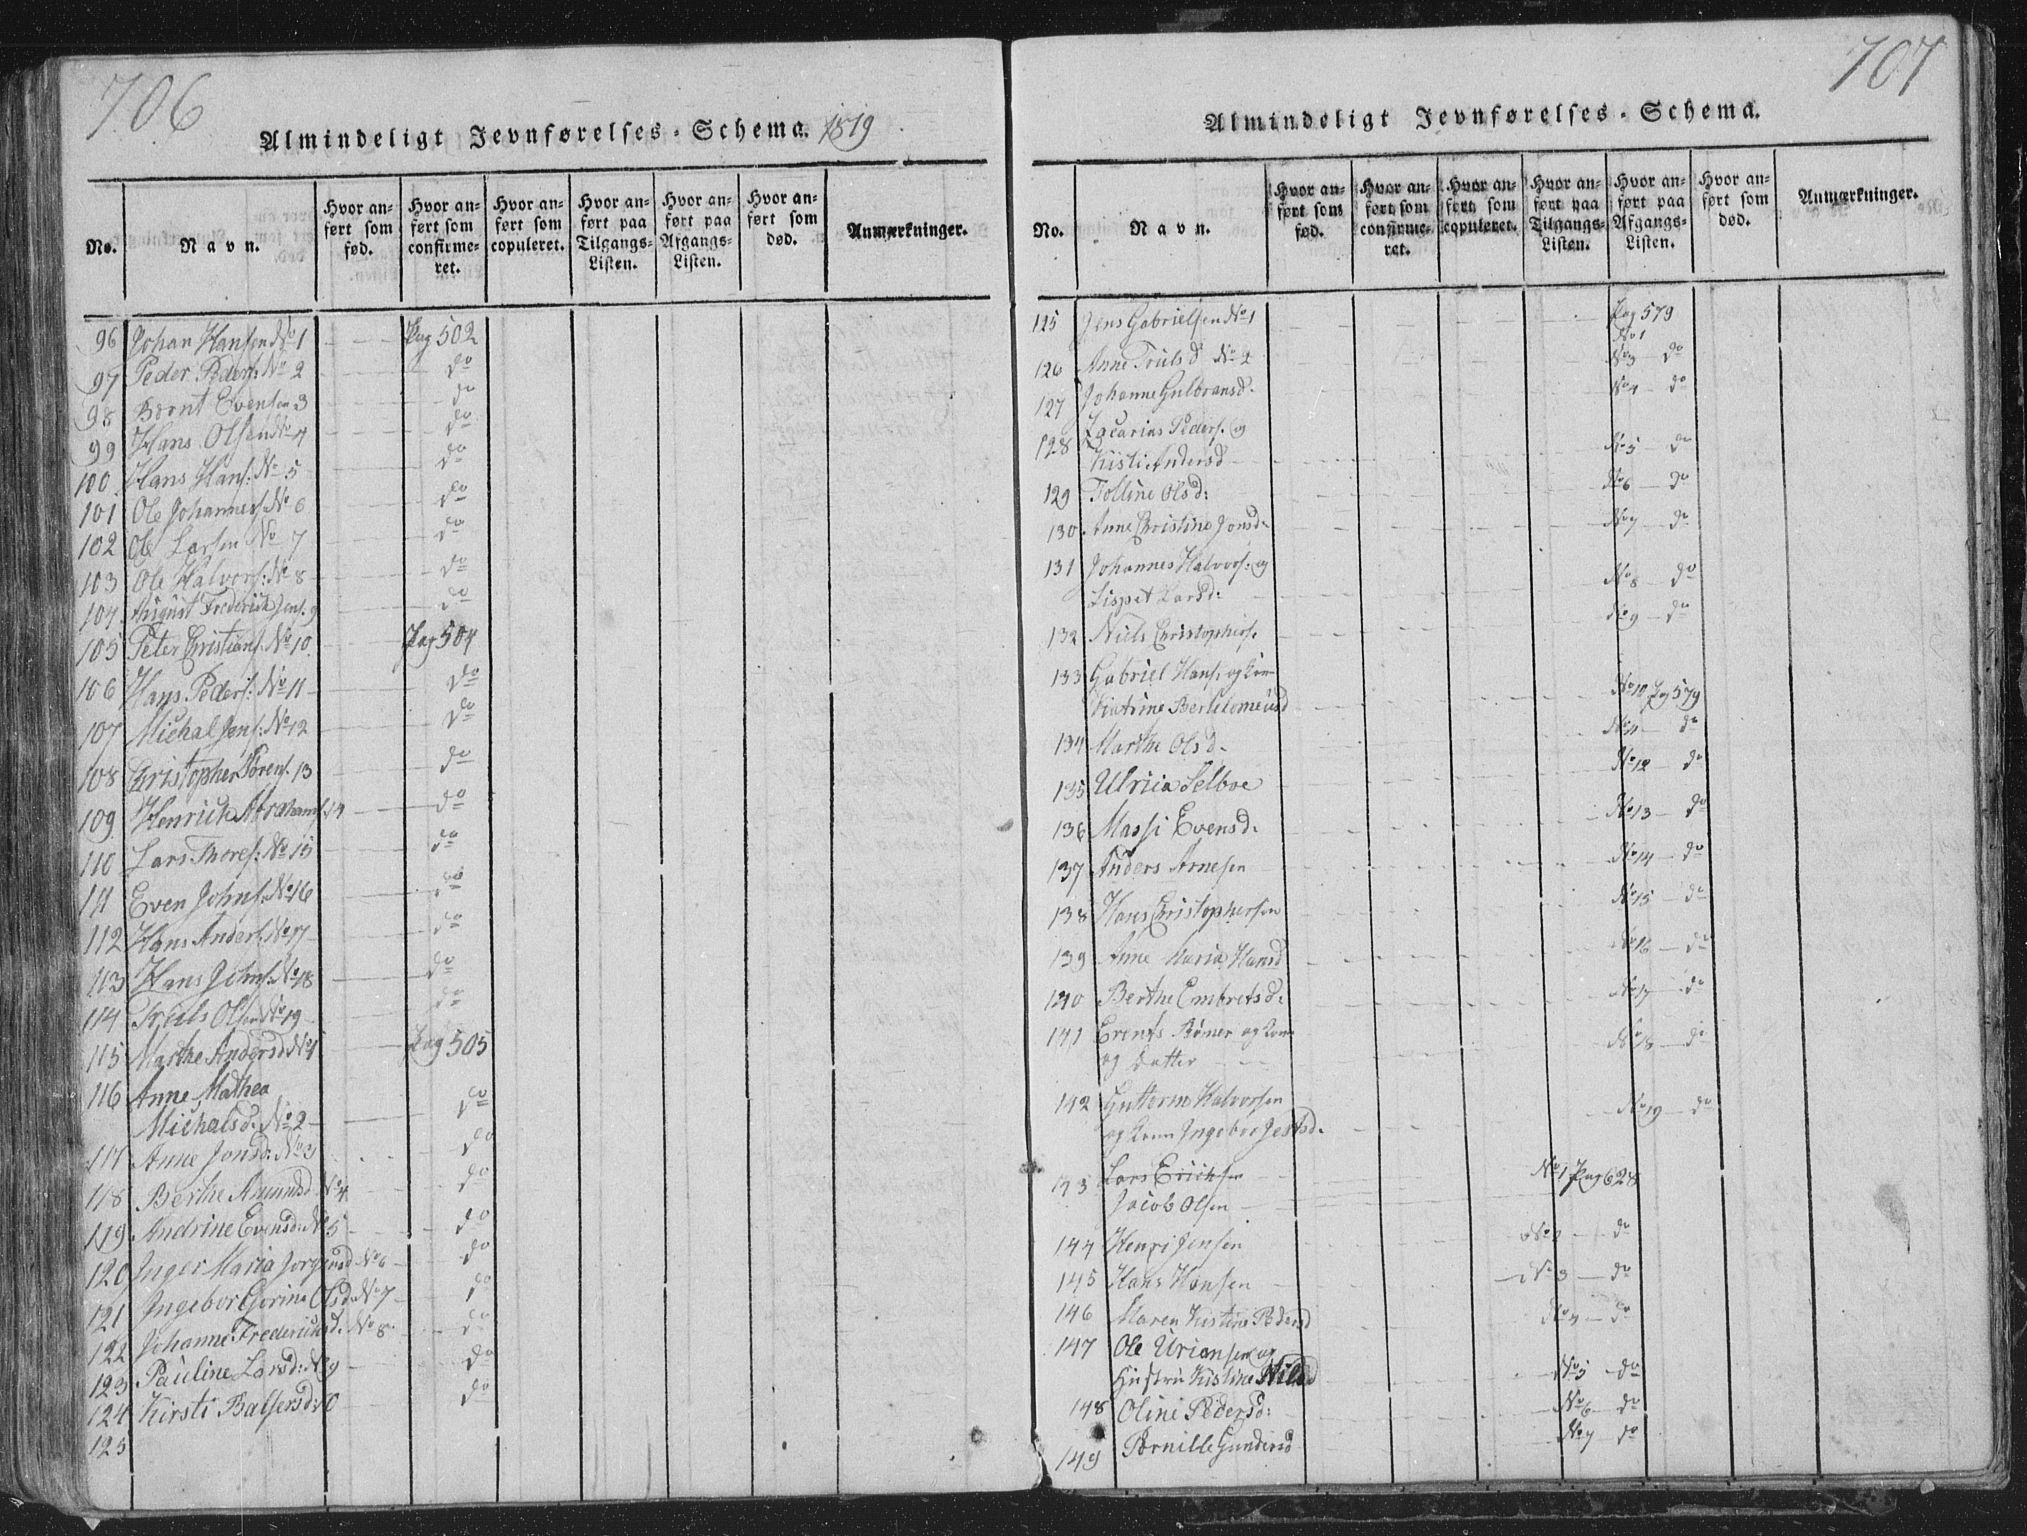 706
Almindeligt Jevnførelses-Schema. 1819
No.
Navn.
Hvor anført som fød.
Hvor anført som confirmeret.
Hvor anført som copuleret.
Hvor anført paa Tilgangs-Listen.
Hvor anført paa Afgangs-Listen.
Hvor anført som død.
Anmærkninger.
96 Johan Hansen No 1 Pag 502
97 Peder Peders: No 2 do
98 Bernt Evensen 3 do
99 Hans Olsen No 4 do
100 Hans Hans: No 5 do
101 Ole Johannes: No 6 do
102 Ole Larsen No 7 do
103 Ole Halvors: No 8 do
104 August Frederick Jens. 9 do
105 Peter Christians: No 10 Pag 504
106 Hans Peders: No 11 do
107 Michal Jens: No 12 do
108 Christopher Sörens. 13 do
109 Henrick Abrahams. 14 do
110 Lars Thores: No 15 do
111 Even Johns. No 16 do
112 Hans Anders. No 17 do
113 Hans Johns: No 18 do
114 Truls Olsen No 19 do
115 Marthe Andersd No 1 Pag 505
116 Anne Mathea
Michalsd. No 2 do
117 Anne Jonsd: No 3 do
118 Berthe Amundsd No 4 do
119 Andrine Evensd: No 5 do
120 Inger Maria Jorgensd No 6 do
121 Ingebor Gorine Olsd: No 7 do
122 Johanne Fredericksd. No 8 do
123 Pauline Larsd: No 9 do
124 Kirsti Balsersd: 10 do
125
707
Almindeligt Jevnførelses-Schema.
No.
Navn.
Hvor anført som fød.
Hvor anført som confirmeret.
Hvor anført som copuleret.
Hvor anført paa Tilgangs-Listen.
Hvor anført paa Afgangs-Listen.
Hvor anført som død.
Anmærkninger.
125 Jens Gabrielsen No 1 Pag 579
No 1
126 Anne Truls d No 2 No 3 do
127 Johanne Gulbransd. No 4 do
128 Zacarias Peders. og
Kisti Andersd No 5 do
129 Tolline Olsd: No 6 do
130 Anne Christine Jonsd. No 7 do
131 Johannes Halvors. og
Lispet Larsd: No 8 do
132 Niels Christophers. No 9 do
133 Gabriel Hans. og Kone
Katrine Bertelomeusd No 10 Pag 579
134 Marthe Olsd. No 11 do
135 Ulricia Selboe No 12 do
136 Massi Evensd. No 13 do
137 Anders Arnesen No 14 do
138 Hans Christophersen No 15 do
139 Anne Maria Hansd No 16 do
140 Berthe Embretsd. No 17 do
141 Römer og Kone
og Datter No 18 do
142 Guttorm Halvorsen
og Kone Ingebor No 19 do
143 Lars Ericksen No 1 Pag 628
Jacob Olsen
144 Jensen No 2 do
145 Hans Hansen No 3 do
146 Maren Kistine Pedersd No 4 do
147 Ole Uriansen og
Hustru Kistine Nilsd No 5 do
148 Oline Pedersd: No 6 do
149 Pernille Gundersd No 7 do